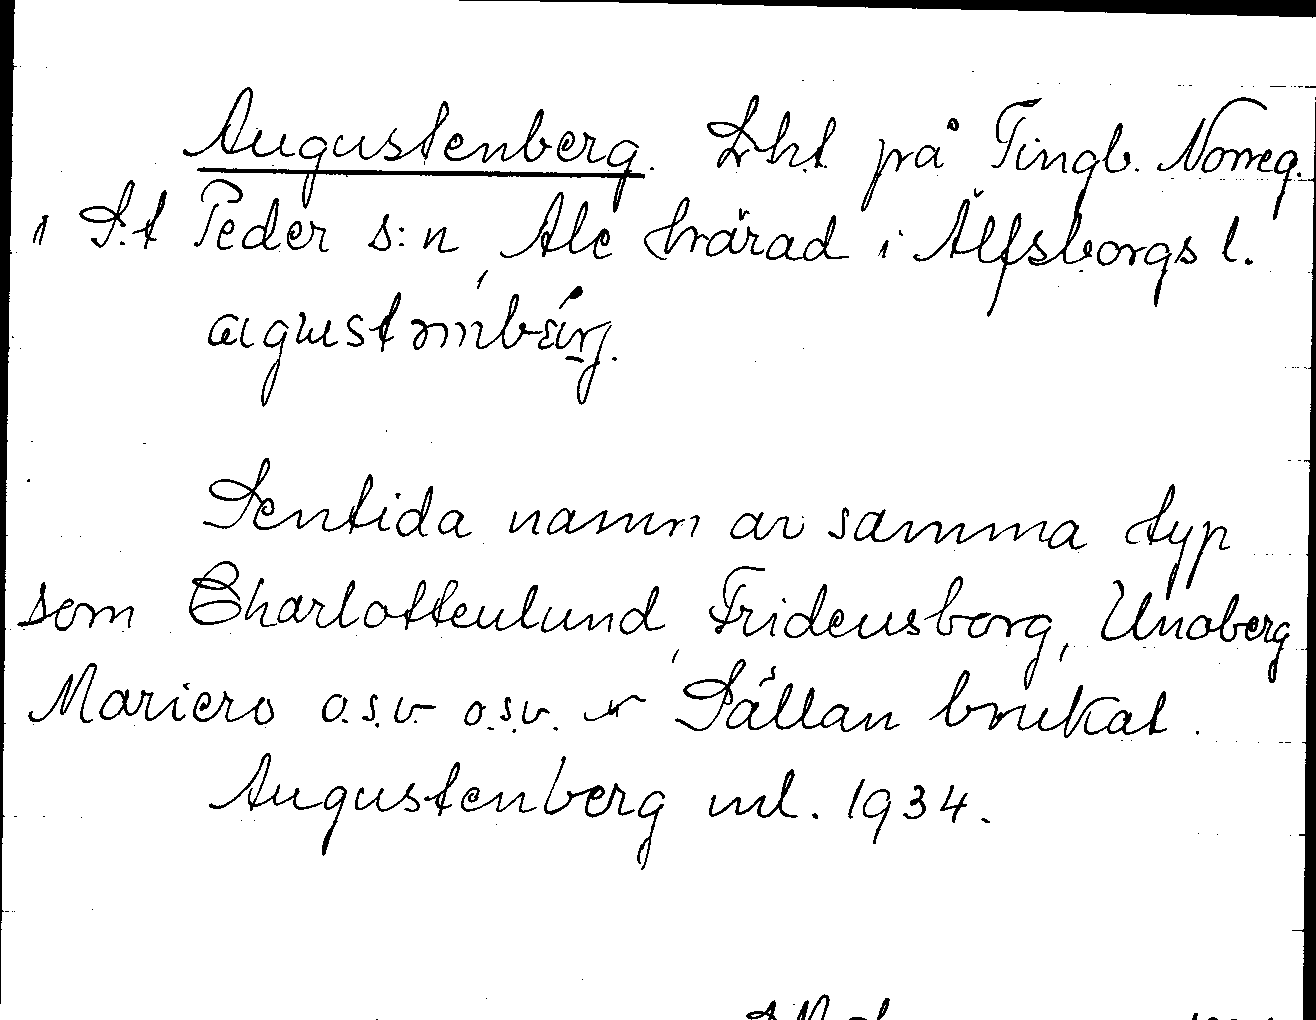 Augustenberg. Lht på Tingb. Norreg.
i S:t Peder s:n, Ale härad i Älfsborgs l.
Sentida namn av samma typ
som Charlottenlund, Fridensborg, Unoberg
Mariero o.s.v. o.s.v. Sällan brukat.
Augustenberg ml. 1934.